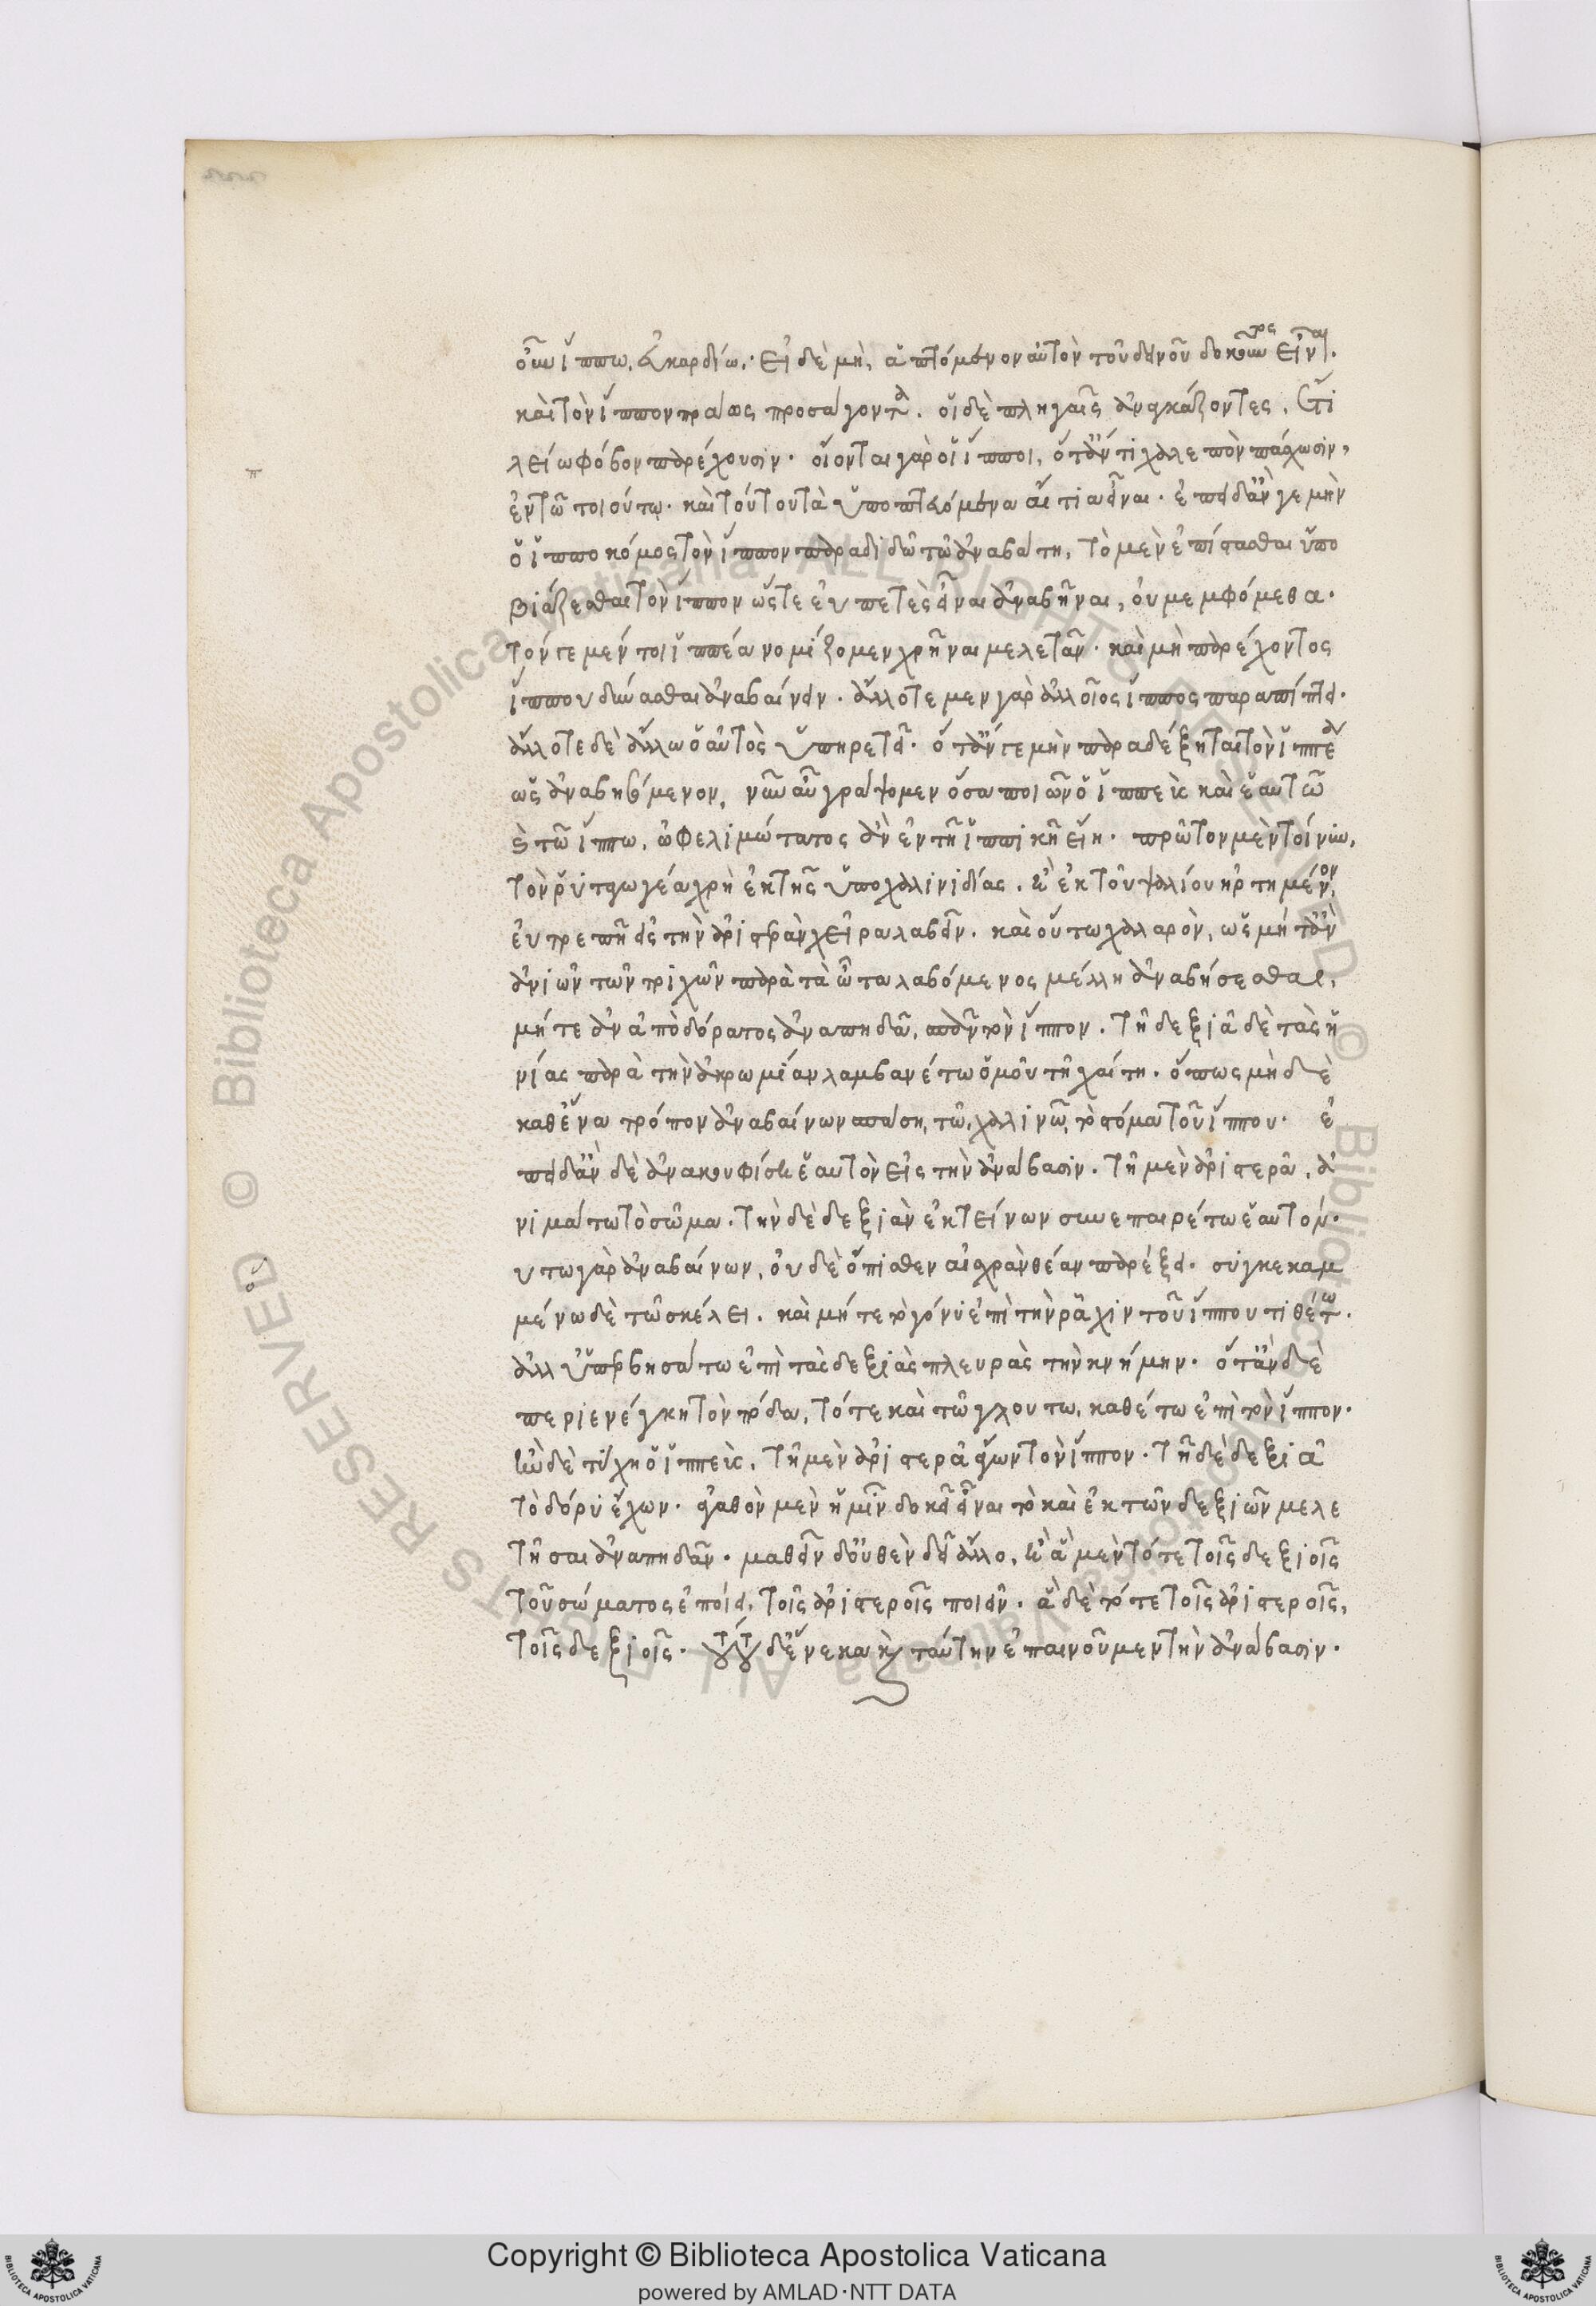 οῦν ἵππω, εὐκαρδίω· εἰ δὲ μὴ, ἁπτόμενον αὐτὸν τοῦ δεινοῦ δοκοῦντος εἶναι.
καὶ τὸν ἵππον πράως προσάγοντα. οἱ δὲ πληγαῖς ἀναγκάζοντες, ἔτι
λείω φόβον παρέχουσιν. οἴονται γὰρ οἱ ἵπποι, ὅταν τι χαλεπὸν πάσχωσιν,
ἐν τῶ τοιούτῳ. καὶ τούτου τὰ ὑποπτευόμενα αἴτια εἶναι. ἐπειδὰν γε μὴν
ὁ ἱπποκόμος τὸν ἵππον παραδιδῶ τῶ ἀναβάτη, τὸ μὲν ἐπίστασθαι ὑπο
βιάζεσθαι τὸν ἵππον ὥστε εὐπετὲς εἶναι ἀναβῆναι, οὐ μεμφόμεθα.
τόν γε μέν τοι ἱππέα νομίζομεν χρῆναι μελετᾶν. καὶ μὴ παρέχοντος
ἵππου δύνασθαι ἀναβαίνειν. ἄλλοτε μεν γὰρ ἀλλοῖος ἵππος παραπίπτει.
ἄλλοτε δὲ ἄλλω ὁ αὐτὸς ὑπηρετεῖ. ὅταν γε μὴν παραδέξηται τὸν ἱππέα
ὡς ἀναβησόμενον, νῦν αὖ γράψομεν ὅσα ποιῶν ὁ ἱππεὺς καὶ ἑαυτῶ
καὶ τῶ ἵππω, ὠφελιμώτατος ἂν ἐν τῆ ἱππικῆ εἴη. πρῶτον μὲν τοίνυν,
τὸν ῥυταγωγέα χρὴ ἐκ τῆς ὑποχαλινιδίας, ἢ ἐκ τοῦ ψαλίου ἠρτημένον,
εὐτρεπῆ εἰς τὴν ἀριστερὰν χεῖρα λαβεῖν. καὶ οὕτω χαλαρὸν, ὡς μήτ ἂν
ἀνιὼν τῶν τριχῶν παρὰ τὰ ὦτα λαβόμενος μέλλη ἀναβήσεσθαι,
μήτε ἂν ἀπὸ δόρατος ἀναπηδᾶ, σπᾶν τὸν ἵππον. τῆ δεξιᾶ δὲ τὰς ἡ
νίας παρὰ τὴν ἀκρωμίαν λαμβανέτω ὁμοῦ τῆ χαίτη. ὅπως μὴ δὲ
καθ ἕνα τρόπον ἀναβαίνων σπάση, τῶ χαλινῶ, τὸ στόμα τοῦ ἵππου. ἐ
πειδὰν δὲ ἀνακουφίση ἑαυτὸν εἰς τὴν ἀνάβασιν. τῆ μὲν ἀριστερᾶ, ἀ
νιμάτω τὸ σῶμα. τὴν δὲ δεξιὰν ἐκτείνων συνεπαιρέτω ἑαυτόν.
υτω γὰρ ἀναβαίνων, οὐδὲ ὄπισθεν αἰσχρὰν θέαν παρέξει. συγκεκαμ
μένω δὲ τῶ σκέλει. καὶ μήτε τὸ γόνυ ἐπὶ τὴν ῥάχιν τοῦ ἵππου τιθέτω.
ἀλλ ὑπερβησάτω ἐπὶ τὰς δεξιὰς πλευρὰς τὴν κνήμην. ὅταν δὲ
περιενέγκη τὸν πόδα, τότε καὶ τὼ γλουτω, καθέτω ἐπὶ τὸν ἵππον.
ἢν δὲ τύχη ὁ ἱππεὺς, τῆ μὲν ἀριστερᾶ ἄγων τὸν ἵππον. τῆ δὲ δεξιᾶ
τὸ δόρυ ἔχων. ἀγαθὸν μὲν ἡμῖν δοκεῖ εἶναι τὸ καὶ ἐκ τῶν δεξιῶν μελε
τῆσαι ἀναπηδᾶν. μαθεῖν δ οὐθὲν δεῖ ἄλλο, ἢ ἃ μὲν τότε τοῖς δεξιοῖς
τοῦ σώματος ἐποίει, τοῖς ἀριστεροῖς ποιεῖν. ἃ δὲ τότε τοῖς ἀριστεροῖς,
τοῖς δεξιοῖς. τούτου δ ἕνεκα καὶ ταύτην ἐπαινοῦμεν τὴν ἀνάβασιν.
Copyright © Biblioteca Apostolica Vaticana
powered by AMLAD·NTT DATA